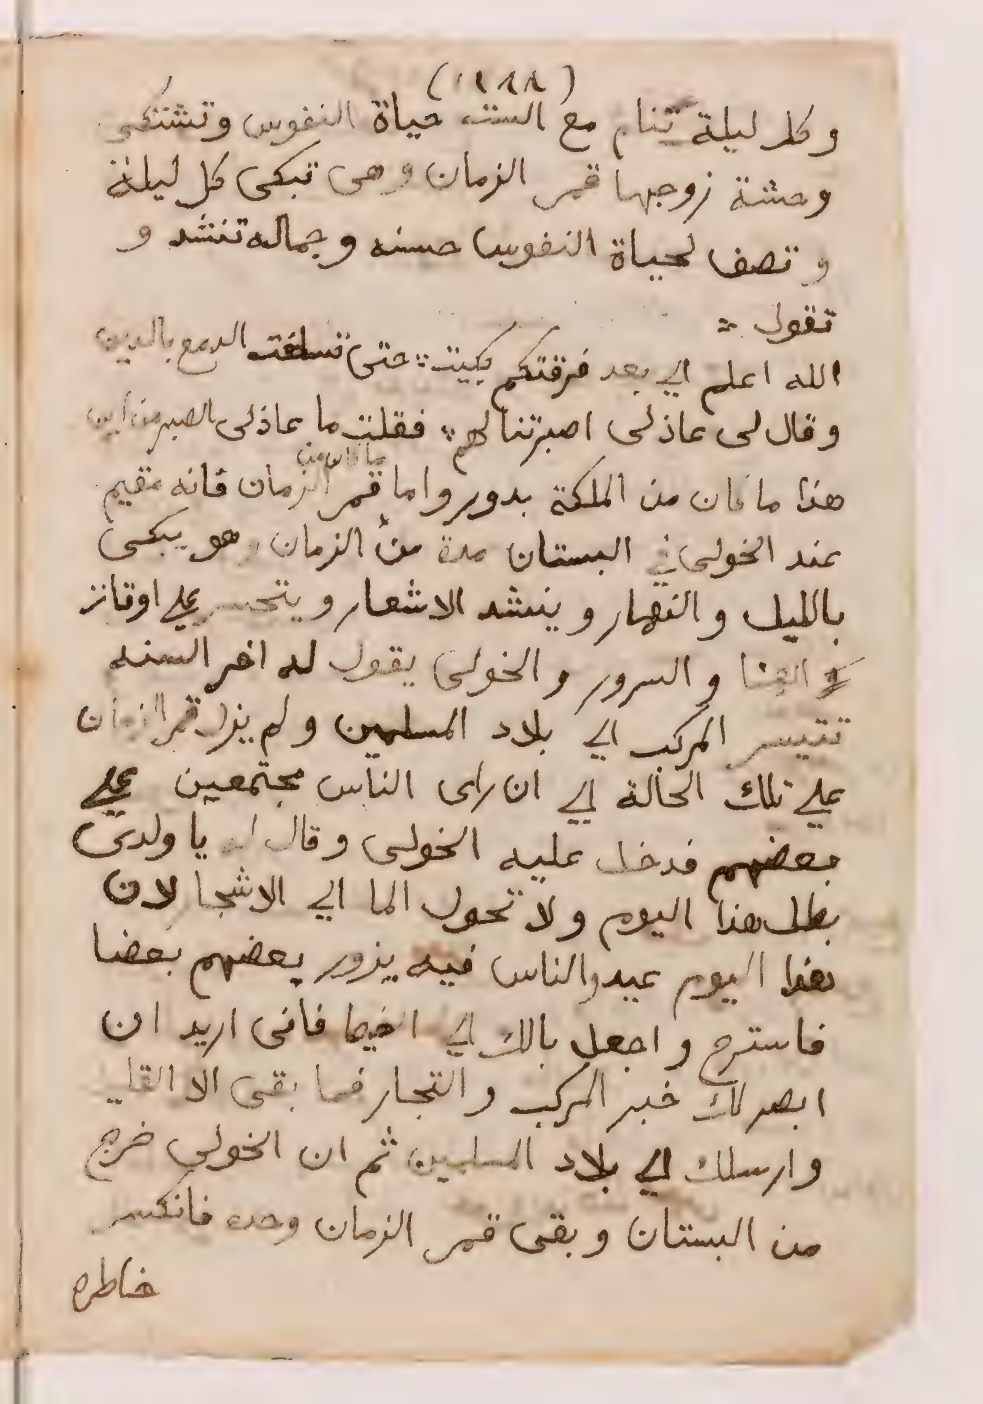 وكل ليلة تنام مع الست حياة النفوس وتشتكى
وحشة زوجها قمر الزمان وهى تبكى كل ليلة
و تصف لحياة النفوس حسنه وجماله تنشد و
تقول
الله اعلم الي بعد فرقتكم بكيت حتى الدمع بالدين
وقال لى عاذلى اصبرتنا لهم فقلت ما عاذلى الصبر من اين
هذا ما كان من الملكة بدور واما ما كان من قمر الزمان فانه مقيم
عند الخولى في البستان مدة من الزمان وهو يبكى
بالليل والنهار وينشد الاشعار ويتحسر علي اوقات
الهنا والسرور والخولى يقول له اخر السنه
تتيسر المركب الي بلاد المسلمين ولم يزل قمر الزمان
علي تلك الحالة الي ان راى الناس مجتمعين علي
بعضهم فدخل عليه الخولى وقال له يا ولدى
بطل هذا اليوم ولا تحول الما الي الاشجا لان
هذا اليوم عيد والناس فيه يزور بعضهم بعضا
فاسترح واجعل بالك الي الغيط فانى اريد ان
ابصر لك خبر المركب والتجار فما بقى الا القليل
وارسلك الي بلاد المسلمين ثم ان الخولى خرج
من البستان وبقى قمر الزمان وحده فانكسر
خاطره